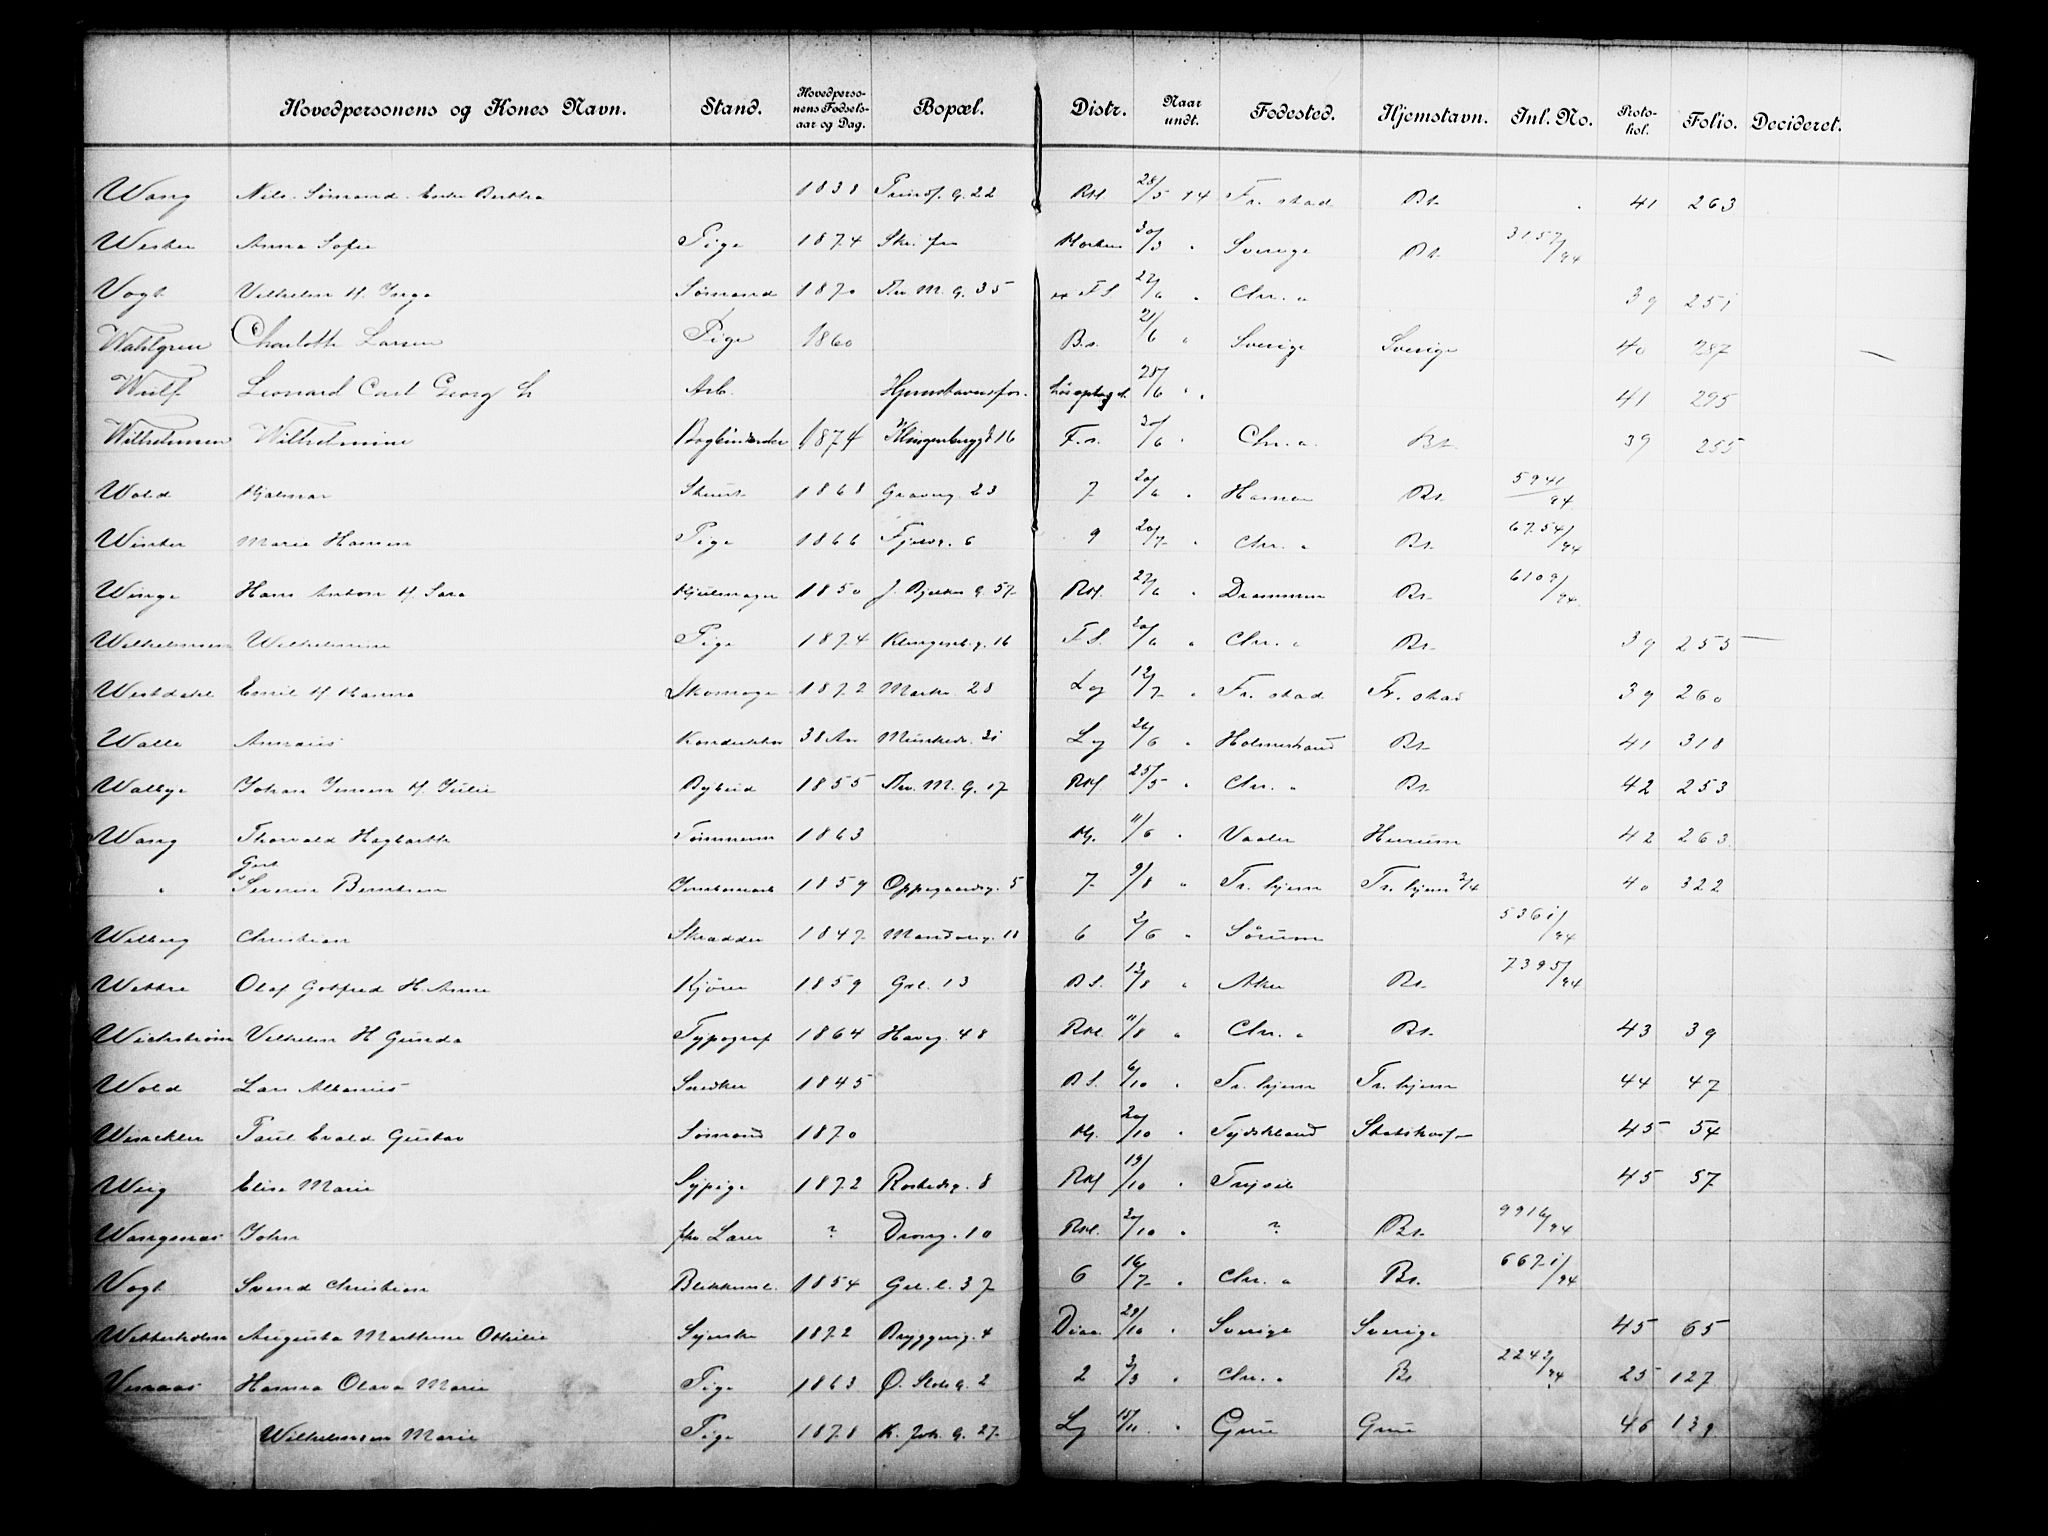 Hovedpersonens og Kones Navn. Stand. Hovedperso-nens Fødsels-aar og Dag. Bopæl. Distr. Naar undt. Fødested. Hjemstavn. Jnl. No. Proto-kol. Folio. Decideret.
Wang Nils Sømand Enke Berthe 1838 G. 22 Rst. 28/5 94 Fr. stad Bt. 41 263
Wester Anna Sofie Pige 1874 30/3 " Sverige Bt. 3157/94
Vogt Vilhelm H. Inga Sømand 1870 Thv. M. G. 35 F S. 27/6 " Chr. a 39 251
Wahlgren Charlotte Larsen Pige 1860 B.s. 21/6 " Sverige Sverige 40 287
Wulf Leonard Carl Georg Arb. Hjemstavnsfor. 28/6 " 41 295
Wilhelmsen Wilhelmine Bogbinderske 1874 Klingenbergg 16 F.s. 20/6 " Chr. a Bt. 39 255
Wold Hjalmar Skuesp. 1868 Graverg. 23 7 20/6 " Hamar Bt. 5941/94
Winter Marie Hansen Pige 1866 Fjeldg. 6 9 20/7 " Chr. a Bt. 6754/94
Winge Hans Anton H. Sara Hjulmager 1850 J. Bjelkes G. 57 Rst. 27/6 " Drammen Bt. 6109/94
Wilhelmsen Wilhelmine Pige 1874 Klingenb.g. 16 F S. 20/6 " Chr. a Bt. 39 255
Westdahl Emil H Hanna Skomager 1872 Markv. 28 Lg 12/7 " Fr. stad Fr. stad 39 260
Walle Annæus Konduktør 38 Aar Munkedv. 21 Lg 26/6 " Holmestrand Bt. 41 318
Walbye Johan Jensen H. Julie Bybud 1855 Thv. M. G. 17 Rst 25/5 " Chr. a Bt. 42 253
Wang Thorvald Hagbarth Tømmerm 1863 Hj. 11/6 " Vaaler Hurum 42 263
" Gert Severin Berntsen 1859 Oppegaardsg. 5 7 9/8 " Tr. hjem Tr. hjem 2/4 40 322
Welberg Christian Skrædder 1847 Mandalsg. 18 6 2/6 " Sørum 5361/94
Wettre Olaf Gotfred H. Anna Kjører 1859 Grl. 13 B S. 13/8 " Aker Bt. 7395/94
Wickstrøm Vilhelm H Gunda Typograf 1864 Haveg. 48 Rst. 11/8 " Chr. a Bt. 43 39
Wold Lars Albanus Snedker 1845 B S. 6/10 " Tr. hjem Tr. hjem 44 47
Winckler Paul Evald Gustav Sømand 1870 Hj. 20/10 " Tydskland 45 54
Weig Elise Marie Sypige 1872 Rostedsg. 8 Rst 19/10 " Trysil 45 57
Wangenæs John fhv. Lærer ? Drong. 10 Rst. 20/10 " ? Bt. 9916/94
Vogt Svend Christian Blikkensl. 1854 Grl. l. 37 6 16/7 " Chr. a Bt. 6671/94
Wetterholm Augusta Mathina Othilie Syerske 1872 Bryggerig. 4 29/10 " Sverige Sverige 45 65
Hanna Olava Marie Pige 1863 Ø. Slots G. 2 2 3/3 " Chr. a Bt 2242/94 25 127
Wilhelmsen Marie Pige 1878 K. Joh. G. 27 Lg 15/11 " Grue Grue 46 139